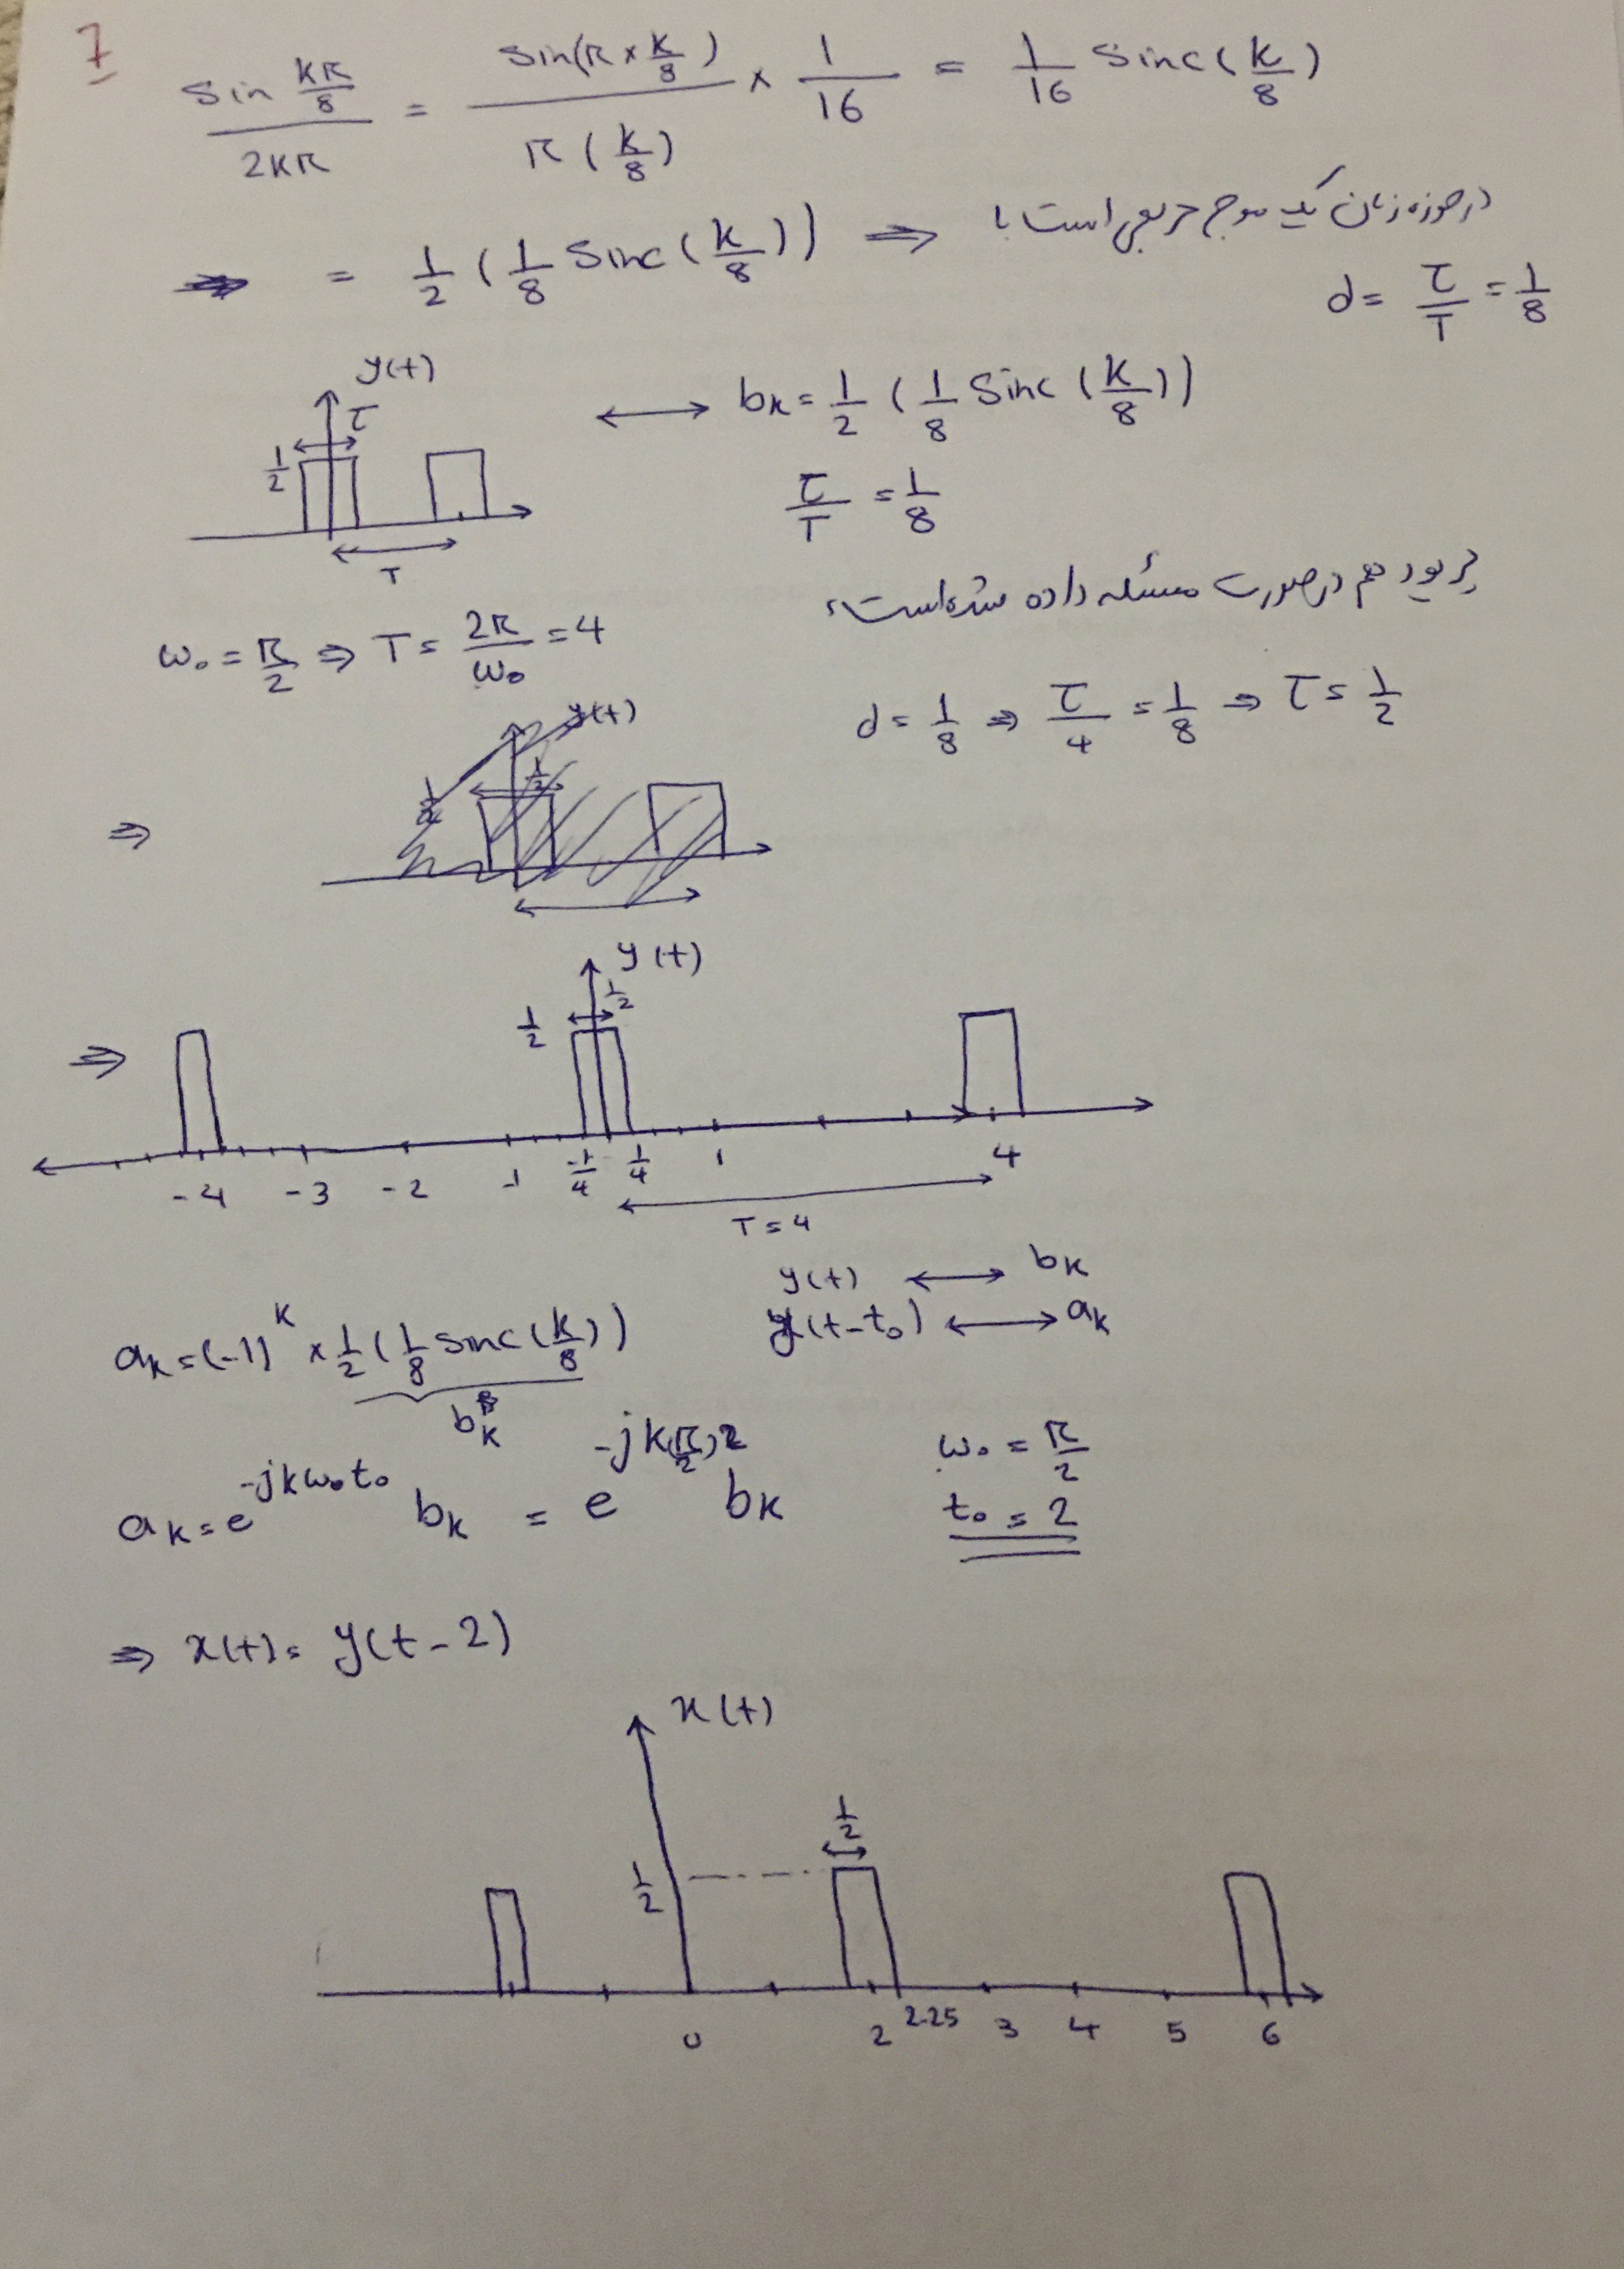 7
sin kπ/8 / 2kπ = sin(π × k/8) / π(k/8) × 1/16 = 1/16 sinc(k/8)
⇒ = 1/2 (1/8 sinc(k/8)) ⇒ در حوزه زمان یک موج مربعی است با
d = τ/T = 1/8
y(t)
τ
1/2
T
↔ bk = 1/2 (1/8 sinc(k/8))
τ/T = 1/8
پریود هم در صورت مسئله داده شده است،
ω₀ = π/2 ⇒ T = 2π/ω₀ = 4
d = 1/8 ⇒ τ/4 = 1/8 ⇒ τ = 1/2
⇒
y(t)
1/2
⇒
y(t)
1/2
1/2
-4 -3 -2 -1 -1/4 1/4 1 4
T = 4
y(t) ↔ bk
y(t-t₀) ↔ ak
ak = (-1)^k × 1/2 (1/8 sinc(k/8))
bk
ak = e^(-jkω₀t₀) bk = e^(-jk(π/2)2) bk
ω₀ = π/2
t₀ = 2
⇒ x(t) = y(t-2)
x(t)
1/2
1/2
0 2 2.25 3 4 5 6